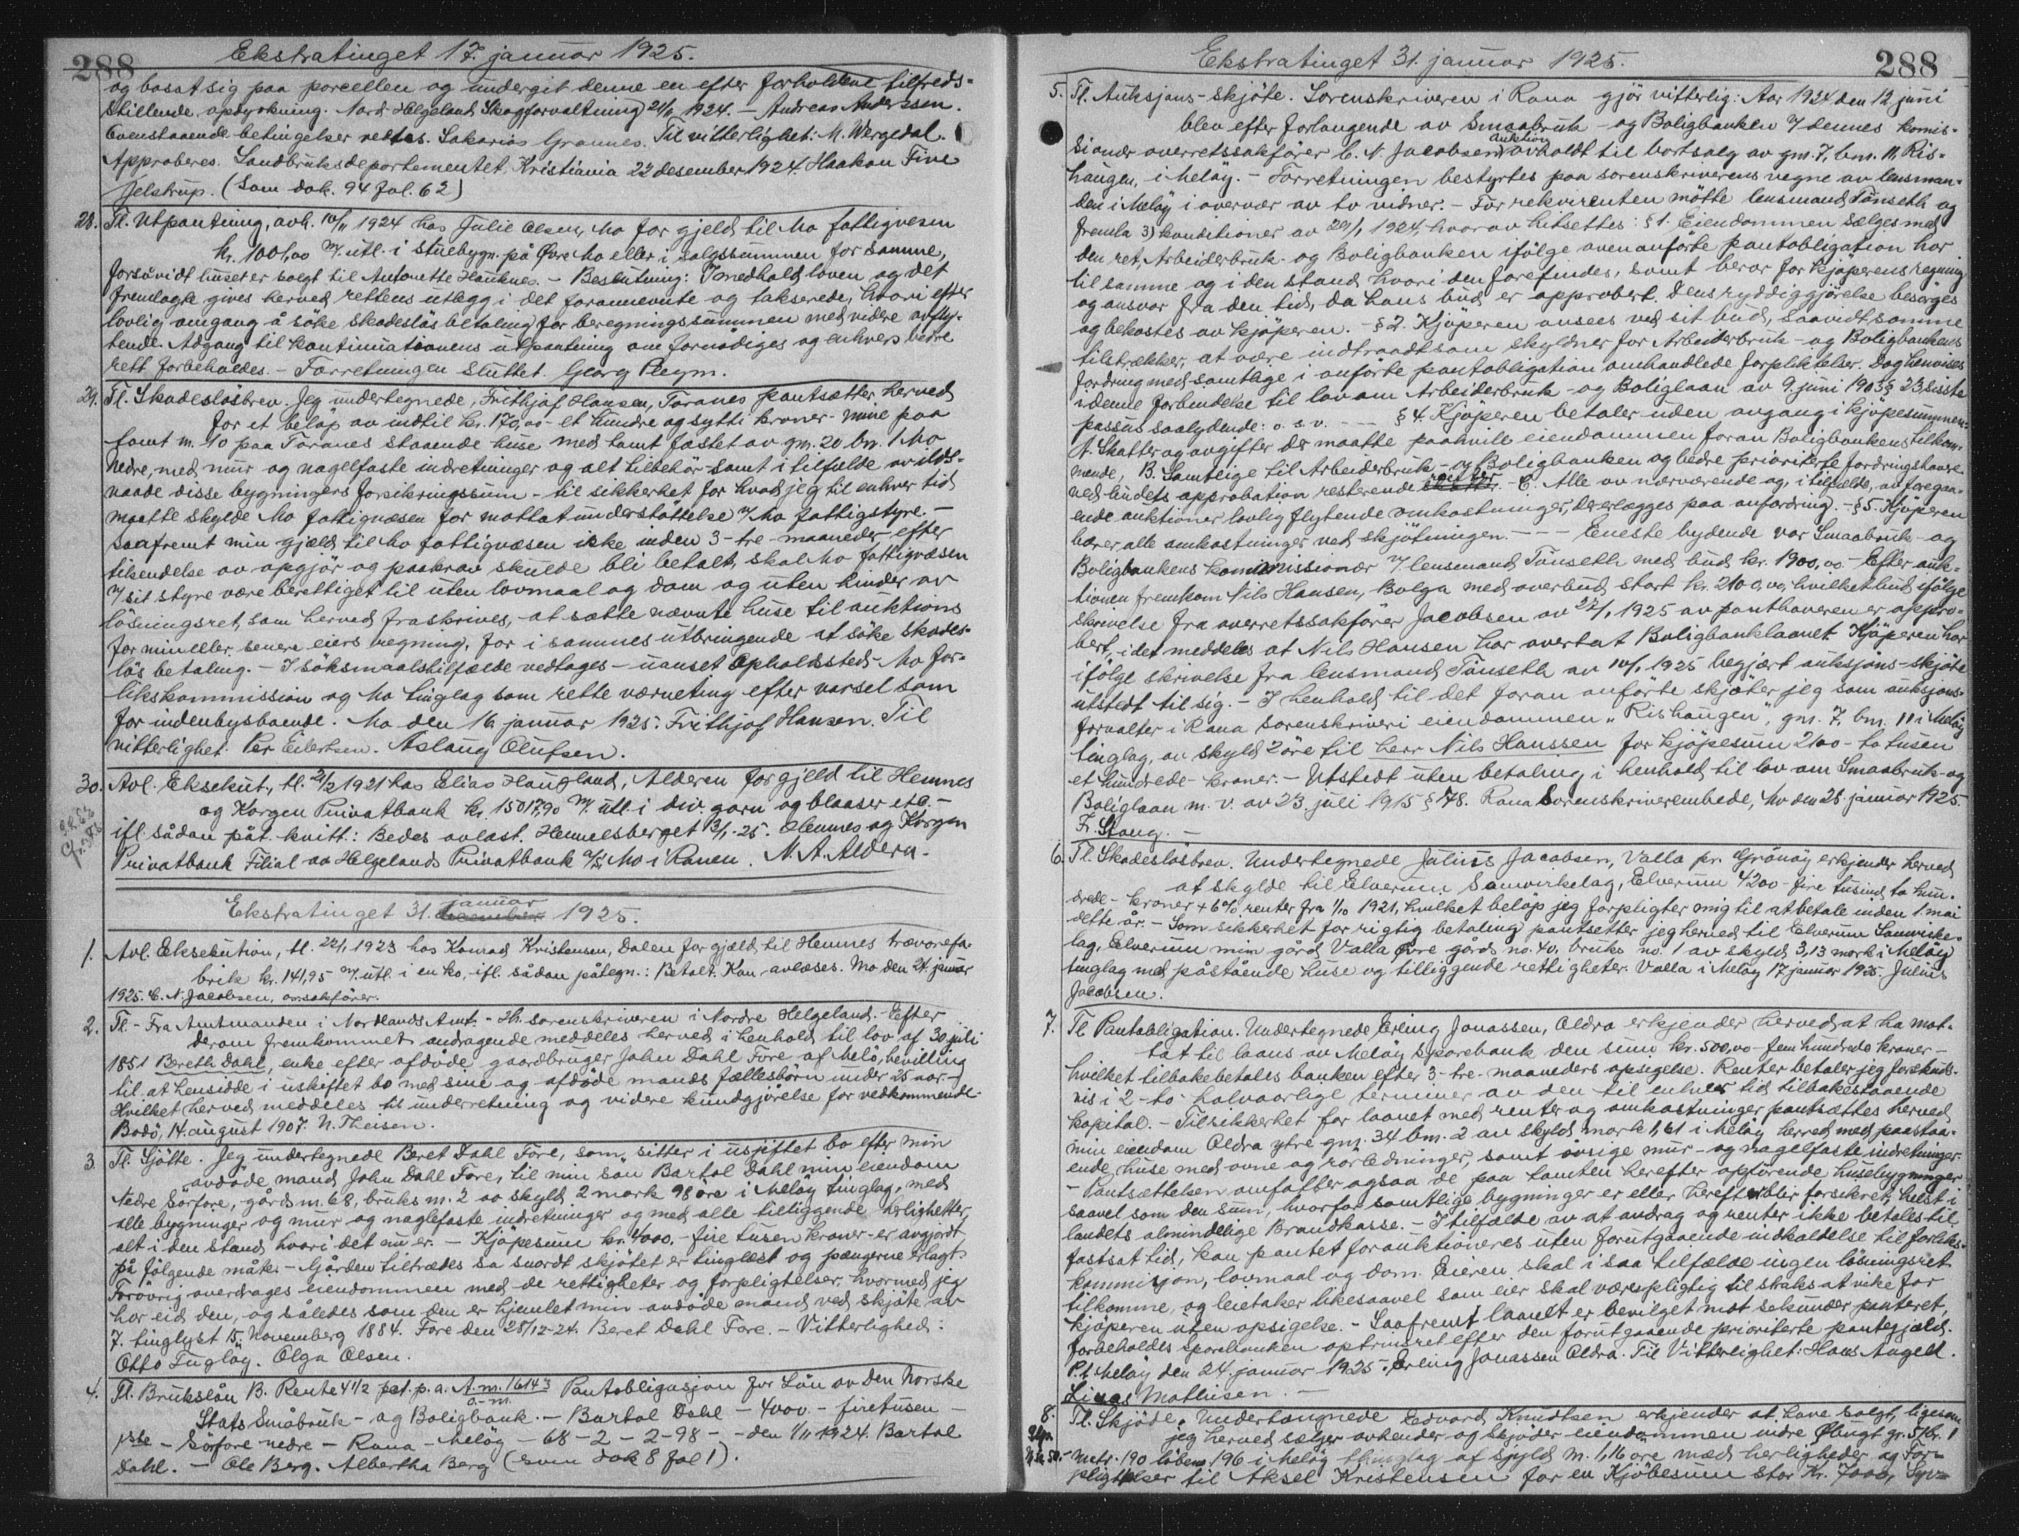 288
Ekstratinget 17. januar 1925.
og bosat sig paa porcellen og undergit denne en efter forholdene tilfreds-
stillende opdyrkning. Nord-Helgeland Skogforvaltning 24/11 1924. – Andreas Anderssen.
Ovenstaaende betingelser vedtas. Sakarias Grannes. Til vitterlighet: M. Wergedal.
Approberes. Landbruksdepartementet, Kristiania 22 desember 1924. Haakon Five
Jelstrup. (Som dok. 94 fol. 62)
28. Tl. Utpantning, avh. 10/11 1924 hos Julie Olsen, Mo for gjeld til Mo fattigvesen
kr. 1001,00 m/ utl. i stuebygn. på Øvre Mo eller i salgssummen for samme,
forsåvidt huset er solgt til Antonette Hauknes. – Beslutning: I medhold loven og det
fremlagte gives herved rettens utlegg i det forannevnte og takserede, hvori efter
lovlig omgang å söke skadeslös betaling for beregningssummen med videre avfly-
tende. Adgang til kontinuationens utpantning om fornödiges og enhver bedre
rett forbeholdes. – Forretningen sluttet. Georg Pleym.
29. Tl. Skadeslösbrev. Jeg undertegnede, Frithjof Hansen, Toranes pantsætter herved
for et belöp av indtil kr. 170,00 et hundre og sytti kroner – mine paa
tomt nr. 10 paa Toranes staaende huse med tomt fæstet av gnr. 20 bnr. 1 Mo
nedre, med mur og nagelfaste indretninger og alt tilbehör samt i tilfælde av ilds-
vaade disse bygningers forsikringssum – til sikkerhet for hvad jeg til enhver tid
maatte skylde Mo fattigvæsen for mottat understöttelse v/ Mo fattigstyre. –
Saafremt min gjæld til Mo fattigvæsen ikke inden 3 – tre – maaneder efter
tilsendelse av opgjör og paakrav skulde bli betalt, skal Mo fattigvæsen
v/ sit styre være berettiget til uten lovmaal og dom og uten hinder av
lösningsret, som herved fraskrives, at sætte nævnte huse til auktions
for min eller senere eiers regning, for i sammes utbringende at söke skades-
lös betaling. – I söksmaalstilfælde vedtages – uanset opholdssted – Mo for-
likskommission og Mo tinglag som rette værneting efter varsel som
for indenbysboende. Mo den 16 januar 1925. Frithjof Hansen. Til
vitterlighet. Per Eilertsen. Aslaug Olufsen.
30. Avl. Eksekut., tl. 2/2 1921 hos Elias Haugland, Alderen for gjeld til Hemnes
og Korgen Privatbank kr. 15017,90 m/ utl. i div. garn og blaaser etc. –
ifl. sådan påt. kvitt.: Bedes avlæst. Hemnesberget 13/1-25. Hemnes og Korgen
Privatbank Filial av Helgelands Privatbank A/S Mo i Ranen. N. A. Aldern.
januar
Ekstratinget 31. 1925.
1. Avl. Eksekution, tl. 22/1 1923 hos Konrad Kristensen, Dalen for gjæld til Hemnes trævarefa-
brik kr. 141,95 m/ utl. i en ko, ifl. sådan påtegn.: Betalt. Kan avlæses. Mo den 24 januar
1925. C. N. Jacobsen, o.r.sakförer.
2. Tl. – Fra Amtmanden i Nordlands Amt. – Hr. sorenskriveren i Nordre Helgeland. – Efter
derom fremkommet andragende meddeles herved i henhold til lov af 30 juli
1851 Bereth Dahl, enke efter afdöde gaardbruger John Dahl Fore af Melö, bevilling
til at hensidde i uskiftet bo med sine og afdöde mands fællesbörn under 25 aar. –
Hvilket herved meddeles til underretning og videre kundgjörelse for vedkommende.
Bodö, 14. august 1907. N. Theisen.
3. Tl. Sjötte. Jeg undertegnede Beret Dahl Fore, som sitter i usjiftet bo efter min
avdöde mand John Dahl Fore, til min son Bartol Dahl min eiendom
Nedre Sörfore, gårds nr. 68, bruks nr. 2 av skyld 2 mark 98 öre i Melöy tinglag, med
alle bygninger og mur og naglefaste indretninger og med alle tilliggende herligheter,
alt i den stand hvori det nu er. – Kjöpesum kr. 4000, – fire tusen kroner – er avgjordt
på fölgende måte. – Gården tiltrædes sa snordt skjötet er tinglest og pængerne erlagt.
Forövrig overdrages eiendommen med de rettigheter og forpligtelser, hvormed jeg
har eid den, og således som den er hjemlet min avdöde mand ved skjöte av
7. tinglyst 15. November 1884. Fore den 28/12-24. Beret Dahl Fore. – Vitterlighed:
Otto Fuglöy. Olga Olsen.
4. Tl. Brukslån B. Rente 4 1/2 pct. p. a. A. nr. 16143 Pantobligasjon for Lån av Den Norske
Stats Småbruk – og Boligbank. – Bartol Dahl – 4000. – firetusen –
– Sörfore nedre – Rana – Melöy – 68 – 2 – 2-98 – – den 1/11 1924. Bartol
Dahl. – Ole Berg. Albertha Berg (som dok 8 fol 1).
288
Ekstratinget 31. januar 1925.
5. Tl. Auksjons-skjöte. Sorenskriveren i Rana gjör vitterlig: Aar 1924 den 12 juni
blev efter forlangende av Smaabruk – og Boligbanken v/ dennes komis-
auktion
sionær overretssakförer C. N. Jacobsen avholdt til bortsalg av gnr. 7, bnr. 11, Ris-
haugen, i Melöy. – Forretningen bestyrtes paa sorenskriverens vegne av lensman-
den i Melöy i overvær av to vidner. – For rekvirenten mötte lensmand Tönseth og
fremla 3) konditioner av 29/1 1924 hvorav hitsettes: § 1. Eiendommen sælges med
den ret, Arbeiderbruk – og Boligbanken ifölge ovenanförte pantobligation har
til samme og i den stand hvori den forefindes, samt beror for kjöperens regning
og ansvar fra den tid, da hans bud er approbert. Dens ryddiggjörelse besörges
og bekostes av kjöperen. – § 2. Kjöperen ansees ved sit bud, saavidt samme
tilstrækker, at være indtraadt som skyldner for Arbeiderbruk – og Boligbankens
fordring med samtlige i anförte pantobligation omhandlede forpliktelser. Dog henvises
i denne forbindelse til lov om Arbeiderbruk – og Boliglaan av 9. juni 1903 § 23 sidste
passus saalydende: o. s. v. – – – § 4. Kjöperen betaler uden avgang i kjöpesummen:
A. Skatter og avgifter der maatte paahvile eiendommen foran Boligbankens tilkom-
mende, B. Samtlige til Arbeiderbruk – og Boligbanken og bedre prioriterte fordringshavere
ved budets approbation resterende – C. Alle av nærværende og, i tilfælde, av foregaa-
ende auktioner lovlig flytende omkostninger, der erlægges paa anfordring. – § 5. Kjöperen
bærer alle omkostninger ved skjötningen. – – – Eneste bydende var Smaabruk – og
Boligbankens kommissionær v/ lensmand Tönseth med bud kr. 1900,00. – Efter auk-
tionen fremkom Nils Hansen, Bolga med overbud stort kr. 2100,00, hvilket bud ifölge
skrivelse fra overretssakförer Jacobsen av 22/1 1925 av panthaveren er appro-
bert, idet meddeles at Nils Hansen har overtat Boligbanklaanet. Kjöperen har
ifölge skrivelse fra lensmand Tönseth av 10/1 1925 begjært auksjons-skjöte
utstedt til sig. – I henhold til det foran anförte skjöter jeg som auksjons-
forvalter i Rana sorenskriveri eiendommen „Rishaugen", gnr. 7, bnr. 11 i Melöy
tinglag, av skyld 2 öre til herr Nils Hanssen for kjöpesum 2100 – to tusen
et hundrede – kroner. – Utstedt uten betaling i henhold til lov om Smaabruk – og
Boliglaan m. v. av 23 juli 1915 § 48. Rana Sorenskriverembede, Mo den 28. januar 1925.
Fr. Stang. –
6. Tl. Skadeslösbrev. Undertegnede Julius Jacobsen, Valla pr. Grönöy erkjender herved
at skylde til Elverum Samvirkelag, Elverum 4200 – fire tusind to hun-
drede – kroner + 6% renter fra 1/10 1921, hvilket belöp jeg forpligter mig til at betale inden 1 mai
dette år. – Som sikkerhet for rigtig betaling pantsetter jeg herved til Elverum Samvirke-
lag, Elverum min gård Valla Övre gårds no. 40, bruks no. 1 av skyld 3,13 mark i Melöy
tinglag med påstående huse og tilliggende rettigheter. Valla i Melöy 17 januar 1925. Julius
Jacobsen.
7. Tl. Pantobligation. Undertegnede Erling Jonassen, Aldra erkjender herved, at ha mot-
tat til laans av Melöy Sparebank den sum kr. 500,00 – fem hundrede kroner –
hvilket tilbakebetales banken efter 3 – tre – maaneders opsigelse. Renter betaler jeg forskuds-
vis i 2 – to – halvaarlige terminer av den til enhver tid tilbakestaaende
kapital. – Til sikkerhet for laanet med renter og omkostninger pantsættes herved
min eiendom Aldra ytre gnr. 34 bnr. 2 av skyld mark 1,61 i Melöy herred med paastaa-
ende huse med ovne og rörledninger, samt övrige mur – og nagelfaste indretninger.
– Pantsættelsen omfatter ogsaa de paa tomten herefter opförende husebygninger
saavel som den sum, hvorfor samtlige bygninger er eller herefter blir forsikret, helst i
landets almindelige Brandkasse. – I tilfælde av at avdrag og renter ikke betales til
fastsat tid, kan pantet forauktioneres uten forutgaaende indkaldelse til forliks-
kommisjon, lovmaal og dom. Eieren skal i saa tilfælde ingen lösningsret
tilkomme, og leietaker likesaavel som eier skal være pligtig til straks at vike for
kjöperen uten opsigelse. – Saafremt laanet er bevilget mot sekundær panteret,
forbeholdes sparebanken optrinsret efter den forutgaaende prioriterte pantegjæld.
P.t. Melöy den 24. januar 1925. Erling Jonassen Aldra. Til Vitterlighet: Hans Angell.
Linas Mathisen. –
8. Tl. Skjöde. Undertangnede Edvard Knudtsen erkjender at have solgt, ligesom
jeg herved sælger avhender og skjöder eiendommen indre Ølvigt gr. 5, br. 1
matr. 190 löben. 196 i Melöy thinglag af skjyld M. 1,16 öre med herligheder og For-
pligttelser til Aksel Kristensen for en Kjöbesum stor Kr. 7000, Syv-